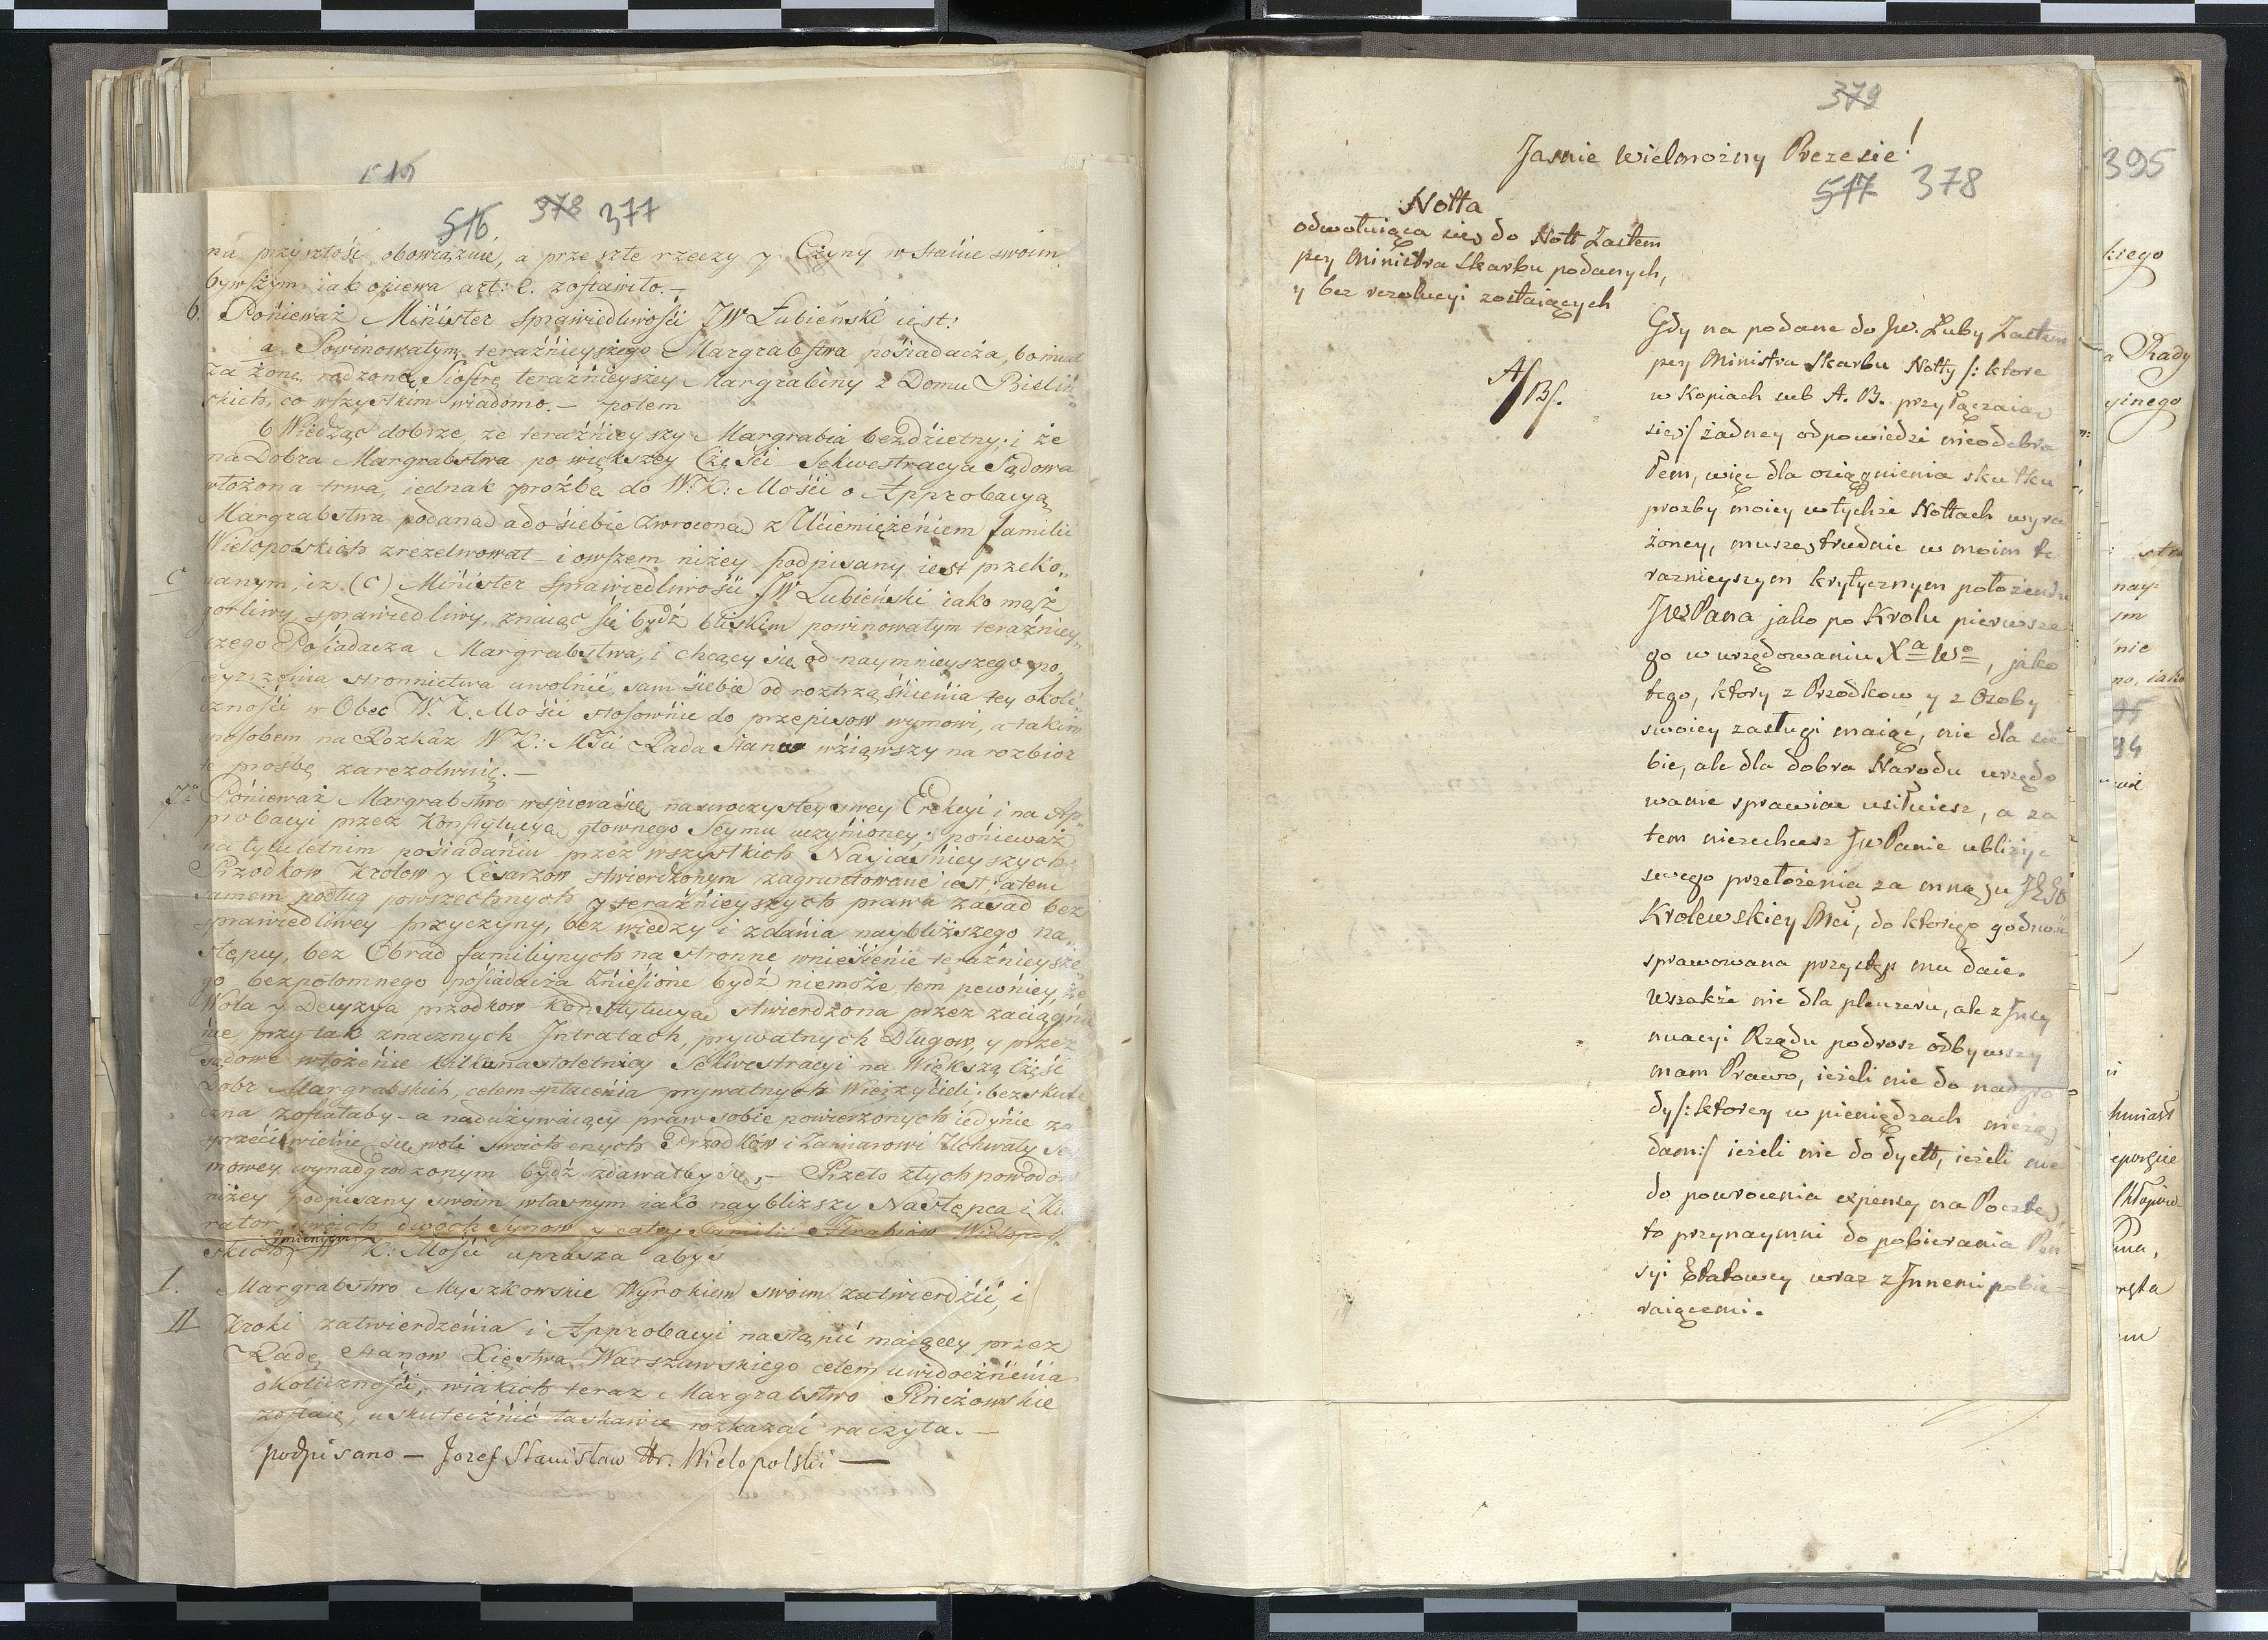 516 378 377
na przyszłość obowiązuié, a przeszłe rzeczy y Czyny w stanie swoim
bywszym iak opiewa art: 2. zostawiło. —
6. Ponieważ Minister Sprawiedliwości JW Łubieński iest:
a Powinowatym teraźnieyszego Margrabstwa posiadacza, bo miał
za żonę rodzoną Siostrę teraźnieyszey Margrabiny z Domu Bieliń„
skich, co wszystkim wiadomo. — potem
b Wiedząc dobrze, że teraźnieyszy Margrabia bezdzietny, i że
na Dobra Margrabstwa po większey Części Sekwestracya Sądowa
włożona trwa, iednak proźbę do W. K: Mości o Approbacyą
Margrabstwa podaną a do siebie zwroconą z Uciemiężeniem familii
Wielopolskich zrezolwował — i owszem niżey podpisany iest przeko„
C nanym, iz (C) Minister Sprawiedliwości JW Łubieński iako mąż
gorliwy, sprawiedliwy, znaiąc się bydź bliskim powinowatym teraźniey„
szego Posiadacza Margrabstwa, i chcący się od naymnieyszego po„
deyrzenia stronnictwa uwolnić, sam siebie od roztrząśnienia tey okoli„
czności w Obec W. K. Mości stosownie do przepisow wymowi, a takim
sposobem na Rozkaz W K: Mści Rada Stanu wziąwszy na rozbior
tę prosbę zarezolwuię. —
7mo Ponieważ Margrabstwo wspiera się na uroczystey swey Erekcyi i na Ap„
probacyi przez Konstytucyą głownego Seymu uczynioney; ponieważ
na tyluletnim posiadaniu przez wszystkich Nayiaśnieyszych
Przodkow Krolow y Cesarzow stwierdzonym zagruntowane iest: a tem
samem podług powszechnych y teraźnieyszych prawa zasad bez
sprawiedliwey przyczyny, bez wiedzy i zdania naybliższego na„
stępcy, bez Obrad familiynych na stronne wniesienie teraźnieysze
go bezpotomnego posiadacza zniesione bydź niemoże, tem pewniey, że
Wola y Decyzya przodkow Konstytucyą stwierdzona przez zaciągnie
nie przy tak znacznych Intratach, prywatnych Długow, y przez
sądowe włożenie kilkunastoletniey Sekwestracyi na Większą Część
Dobr Margrabskich, celem spłacenia prywatnych Wierzycieli, bezskute
czna zostałaby — a nadużywaiący praw sobie powierzonych iedynie za
sprzeciwienie się woli swoich Przodkow i Zamiarowi Uchwały Sey
mowey wynadgrodzonym bydź zdawałby się, — Przeto z tych powodow
niżey podpisany swoim własnym iako naybliższy Następca i Ku
rator swoich dwoch Synow y całey Familii Hrabiow Wielopol„
skich imieniem W K: Mość uprasza aby
I. Margrabstwo Myszkowskie Wyrokiem swoim zatwierdzić, i
II Kroki zatwierdzenia i Approbacyi nastąpić maiącey przez
Radę Stanow Xięstwa Warszawskiego celem uwidocznienia
okoliczności, w iakich teraz Margrabstwo Pinczowskie
zostaie, uskutecznić łaskawie rozkazać raczyła. —
podpisano — Jozef Stanisław Hr. Wielopolski —
379
Jasnie Wielmożny Prezesie!
517 378
Notta
odwołuiąca się do Nott Zastem
pcy Ministra Skarbu podanych,
y bez rezolucyi zostaiących
A/B/.
Gdy na podane do Jw. Łuby Zastem
pcy Ministra Skarbu Notty /: ktore
w Kopiach sub A. B. przyłączaią
się:/ żadney odpowiedzi nieodebra
łem, więc dla osiągnienia skutku
prozby moiey w tychże Nottach wyra
żoney, muszę trudnić w moim te
raznieyszym krytycznym położeniu
JwPana jako po Krolu pierwsze
go w urzędowaniu Xa Wo, jako
tego, ktory z Przodkow y z Osoby
swoiey zasługi maiąc, nie dla sie
bie, ale dla dobra Narodu urzędo
wanie sprawiać usiłuiesz, a za
tem niezechcesz JwPanie ubliżyć
swego przełożenia za mną Ju JEgo
Krolewskiey Mci, do ktorego godność
sprawowana przystęp mu daie.
Wszakże nie dla pleuzeru, ale z Insy
nuacyi Rządu podrosz odbywszy
mam Prawo, ieżeli nie do nadgro
dy /: ktorey w pieniędzach nieżą
dam:/ ieżeli nie do dyett, ieżeli nie
do powrocenia expensy na Pocztę,
to przynaymni do pobierania Pen
syi Etatowey wraz z Innemi pobie=
raiącemi.
395
kiego
a Rady
yinego
nay=
ym
nie
no, iako
94
hmiast